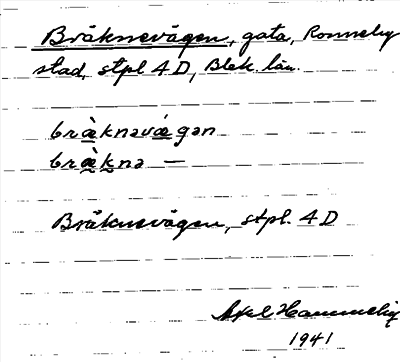 Bräknevägen, gata, Ronneby
stad, stpl 4D, Blek. län.
bræ̀knəvægən
bræ̀knə —
Bräknevägen, stpl. 4D
Axel Hammelig
1941